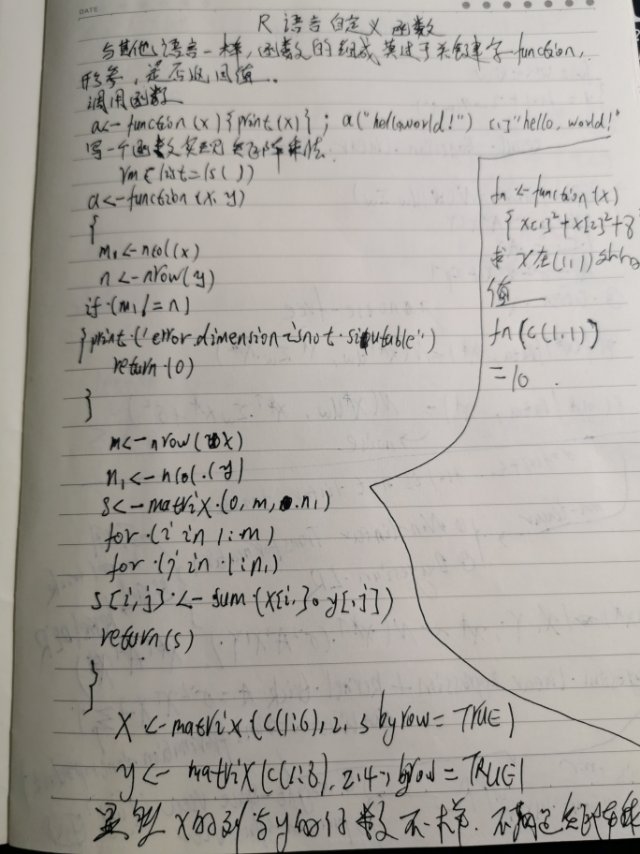 DATE
R 语言自定义函数
与其他语言一样,函数的组成关键字function,
形参,是否返回值.
调用函数
a<-function(x){print(x)}; a("hello,world!") [1]"hello, world!"
写一个函数实现矩阵乘法
rm(list=ls())
a<-function(x, y)
{
m1<-ncol(x)
n<-nrow(y)
if(m1!=n)
{print('error dimension is not siutable')
return(0)
}
m<-nrow(x)
n1<-ncol(y)
s<-matrix(0, m, n1)
for(i in 1:m)
for(j in 1:n1)
s[i,j]<-sum(x[i,]*y[,j])
return(s)
}
x<-matrix(c(1:6), 2, 3 byrow=TRUE)
y<-matrix(c(1:8), 2,4, byrow=TRUE)
x的列与y的行数不一样. 不满足矩阵
fn<-function(x)
{x[1]²+x[2]²+8
求x在(1,1)
值
fn(c(1,1))
=10.